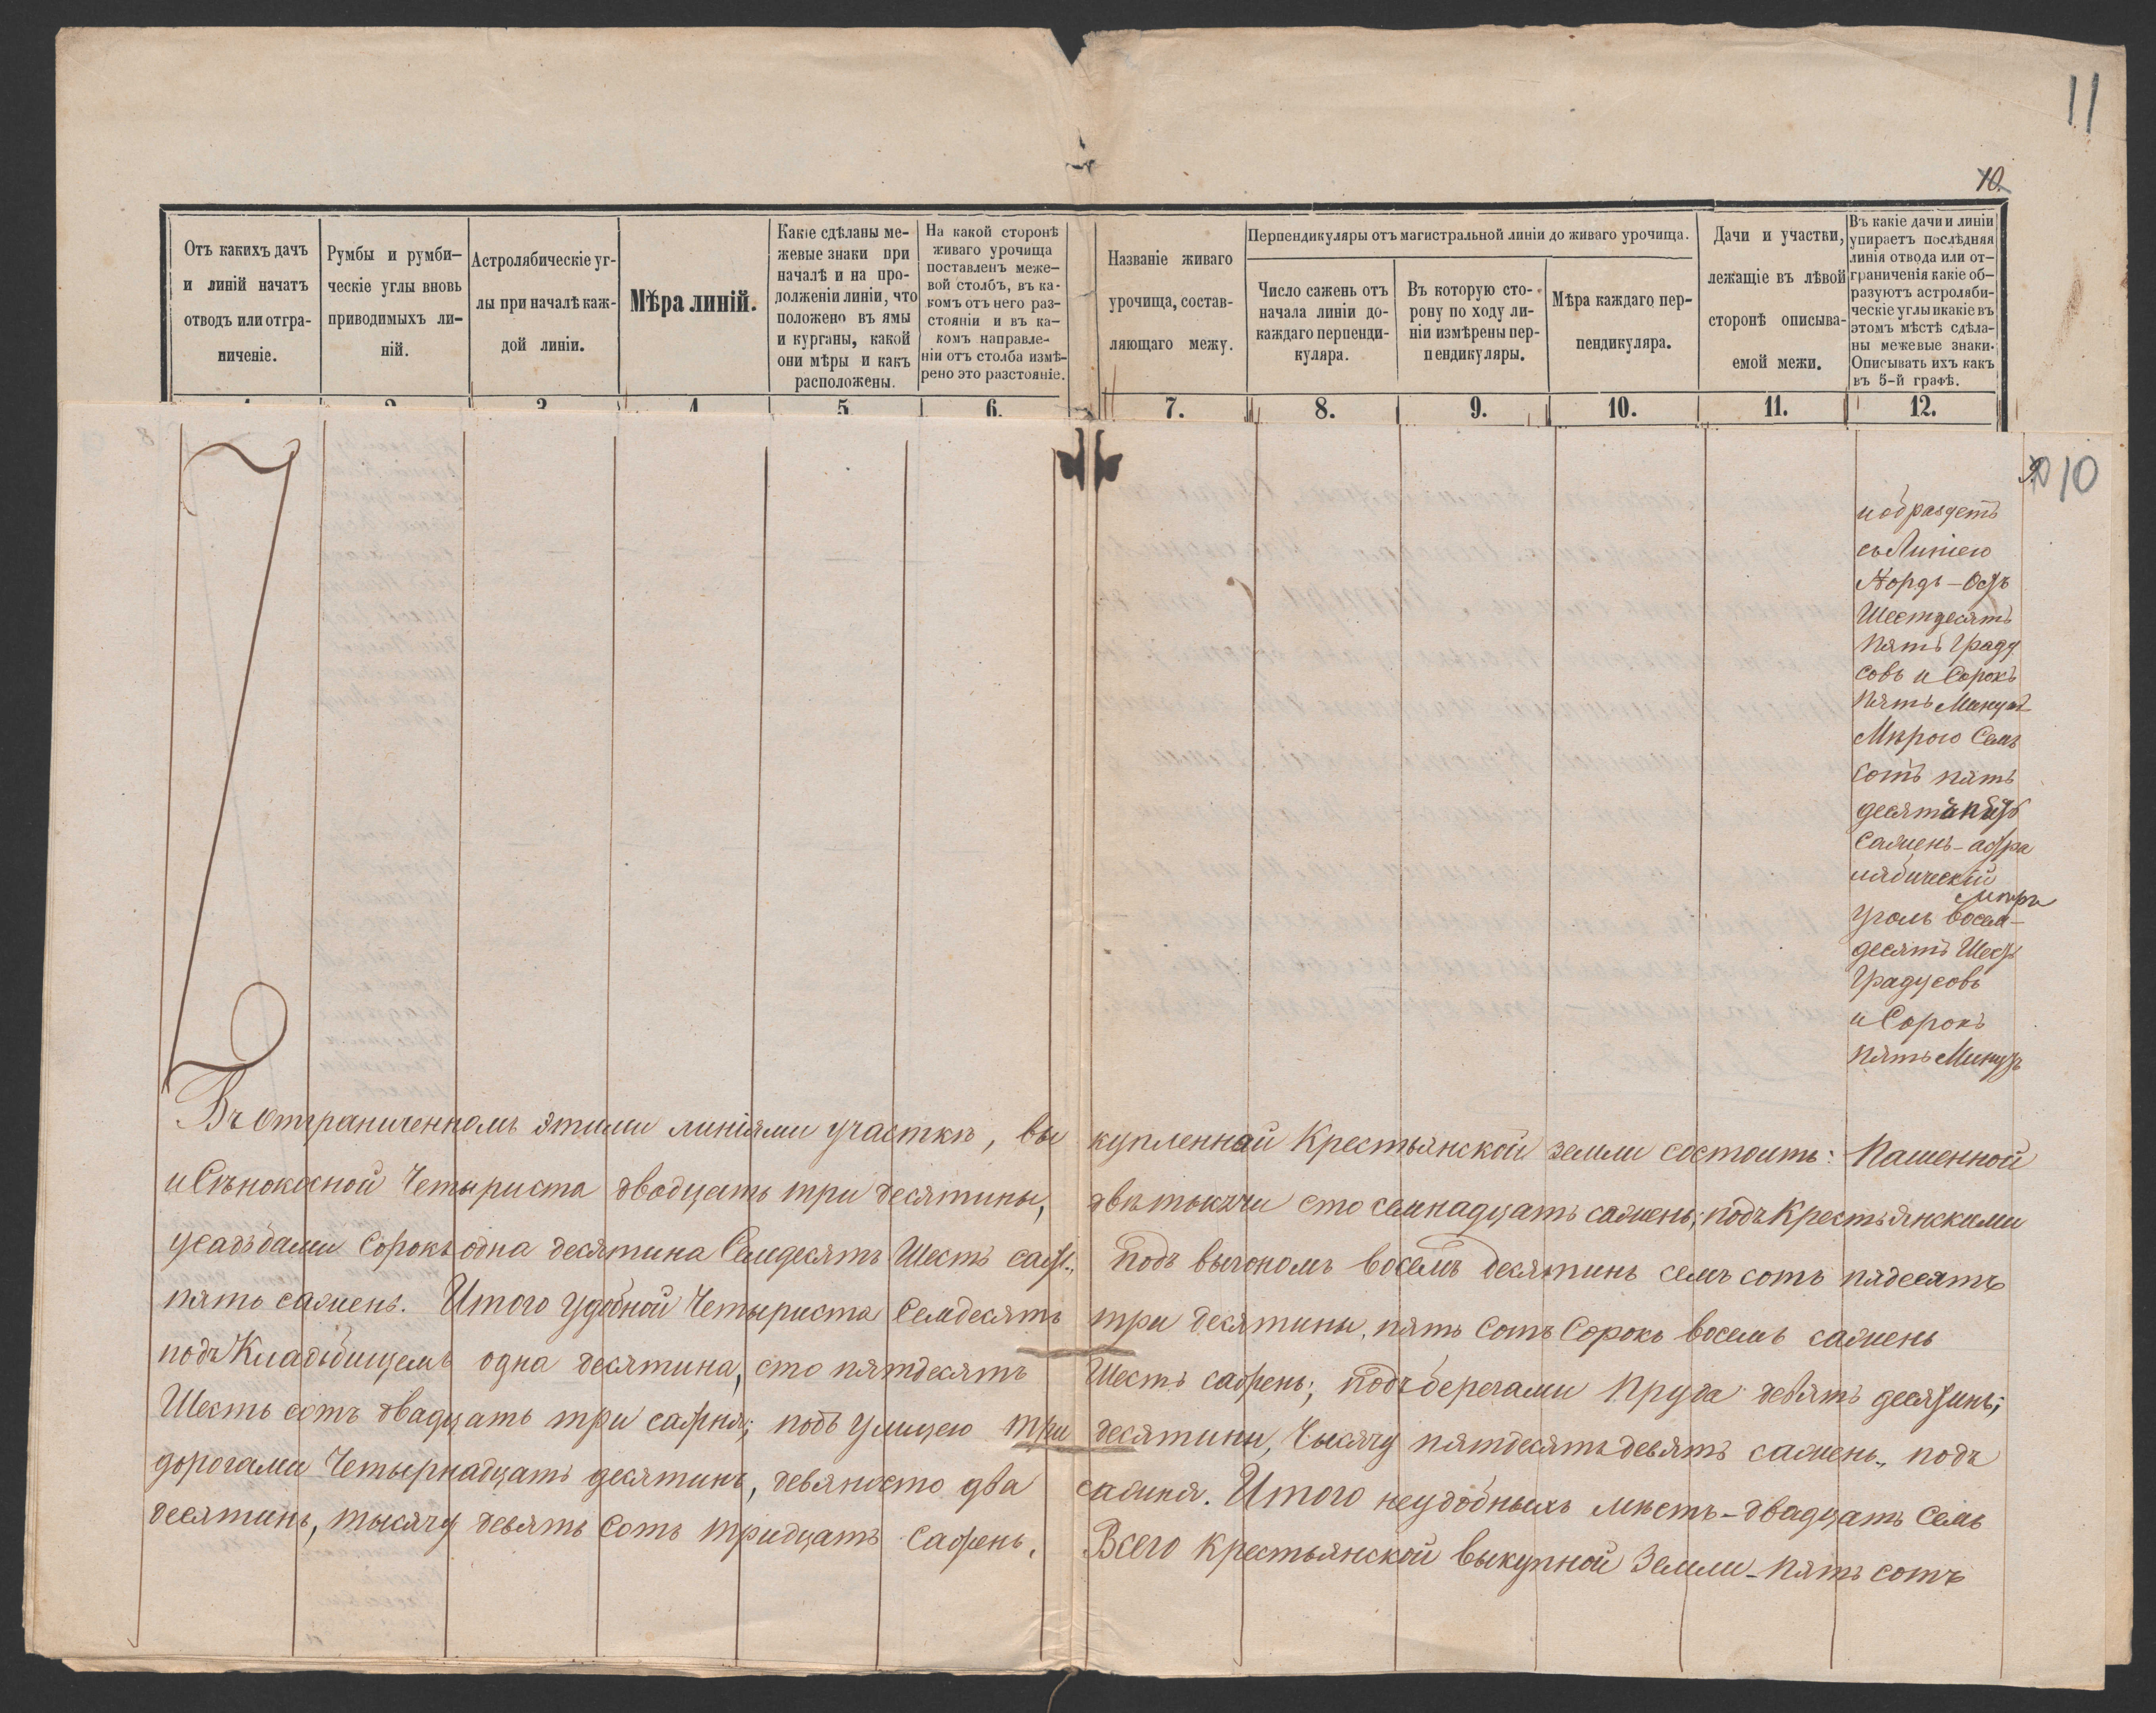 11
10.
Отъ какихъ дачъ
и линій начатъ
отводъ или отгра-
ниченіе.
Румбы и румби-
ческіе углы вновь
приводимыхъ ли-
ній.
Астролябическіе уг-
лы при началѣ каж-
дой линіи.
Мѣра линій.
Какіе сдѣланы ме-
жевые знаки при
началѣ и на про-
долженіи линіи, что
положено въ ямы
и курганы, какой
они мѣры и какъ
расположены.
На какой сторонѣ
живаго урочища
поставленъ меже-
вой столбъ, въ ка-
комъ отъ него раз-
стояніи и въ ка-
комъ направле-
ніи отъ столба измѣ-
рено это разстояніе.
Названіе живаго
урочища, состав-
ляющаго межу.
Перпендикуляры отъ магистральной линіи до живаго урочища.
Число сажень отъ
начала линіи до
каждаго перпенди-
куляра.
Въ которую сто-
рону по ходу ли-
ніи измѣрены пер-
пендикуляры.
Мѣра каждаго пер-
пендикуляра.
Дачи и участки,
лежащіе въ лѣвой
сторонѣ описыва-
емой межи.
Въ какіе дачи и линіи
упираетъ послѣдняя
линія отвода или от-
граниченія какіе об-
разуютъ астроляби-
ческіе углы и какіе въ
этомъ мѣстѣ сдѣла-
ны межевые знаки.
Описывать ихъ какъ
въ 5-й графѣ.
5. 6. 7. 8. 9. 10. 11. 12.
10
и образуетъ
съ Линіею
Нордъ-Остъ
Шестдесятъ
Пять Граду
совъ и Сорокъ
Пять Минутъ
Мѣрою Семь
сотъ пять
десятъ
сажень - астра
лябическій
уголъ восем-
десятъ Шесть
Градусовъ
и Сорокъ
Пять Минутъ
Въ отграниченномъ этими линіями участкѣ, вы купленной Крестьянской земли состоитъ: Пашенной
и Сѣнокосной Четыриста двадцать три десятины, двѣ тысячи сто семнадцать сажень; подъ Крестьянскими
усадьбами Сорокъ одна десятина Семдесятъ Шесть саж., подъ выгономъ восемь десятинъ семь сотъ пядесятъ
пять сажень. Итого удобной Четыриста Семдесятъ три десятины, пять Сотъ Сорокъ восемь сажень
подъ Кладбищемъ одна десятина, сто пятдесятъ Шесть сажень; подъ берегами Пруда девять десятинъ;
Шесть сотъ двадцать три сажня; подъ улицею три десятины, тысячу пятдесятъ девять сажень, подъ
дорогами Четырнадцать десятинъ, девяносто два сажня. Итого неудобныхъ мѣстъ - двадцать Семь
десятинъ, тысячу девять Сотъ тридцать Сажень. Всего крестьянской выкупной Земли - пять сотъ